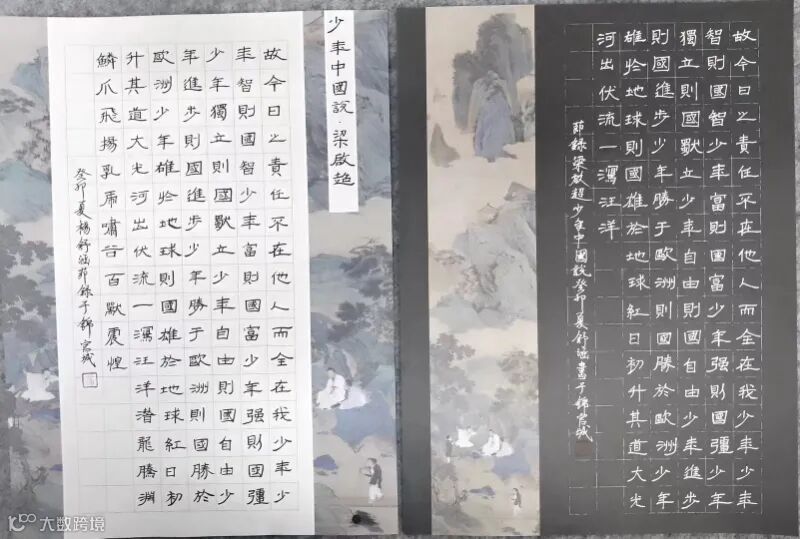 少年中國說·梁啟超
故今日之責任不在他人而全在我少年少
年智則國智少年富則國富少年强則國彊
少年獨立則國獨立少年自由則國自由少
年進步則國進步少年勝于歐洲則國勝於
歐洲少年雄於地球則國雄於地球紅日初
升其道大光河出伏流一瀉汪洋潛龍騰淵
鱗爪飛揚乳虎嘯谷百獸震惶
癸卯夏楊舒涵節錄于錦官城
故今日之責任不在他人而全在我少年少年
智則國智少年富則國富少年强則國彊少年
獨立則國獨立少年自由則國自由少年進步
則國進步少年勝于歐洲則國勝於歐洲少年
雄於地球則國雄於地球紅日初升其道大光
河出伏流一瀉汪洋
節錄梁啟超少年中國說癸卯夏舒涵書于錦官城
大数跨境